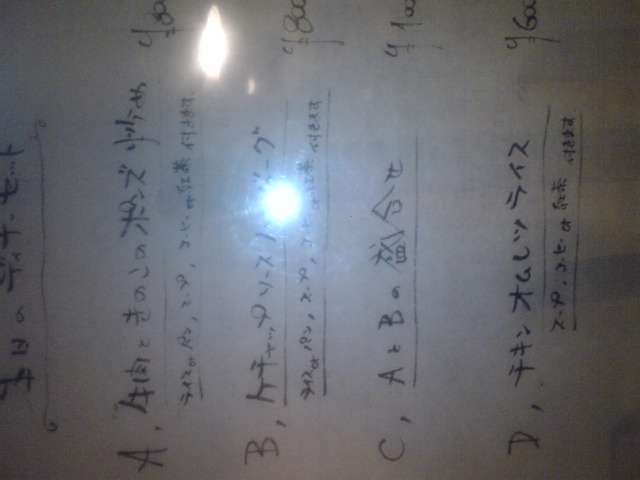 本日のディナーセット
A, 牛肉ときのこのポンズ炒め ¥800
ライスorパン, スープ, コーヒーor紅茶 付きます.
B, ケチャップソースハンバーグ ¥800
ライスorパン, スープ, コーヒーor紅茶 付きます
C, AとBの盛合せ
D, チキンオムレツライス ¥600
スープ, コーヒーor紅茶 付きます.